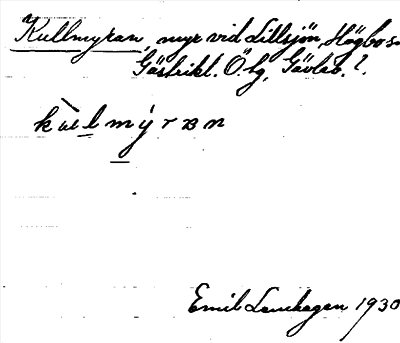 Kullmyran, myr vid Lillsjön, Högbo sn
Gästrikl. Ö hg, Gävleb. l.
kullmýran
Emil Lenhagen 1930